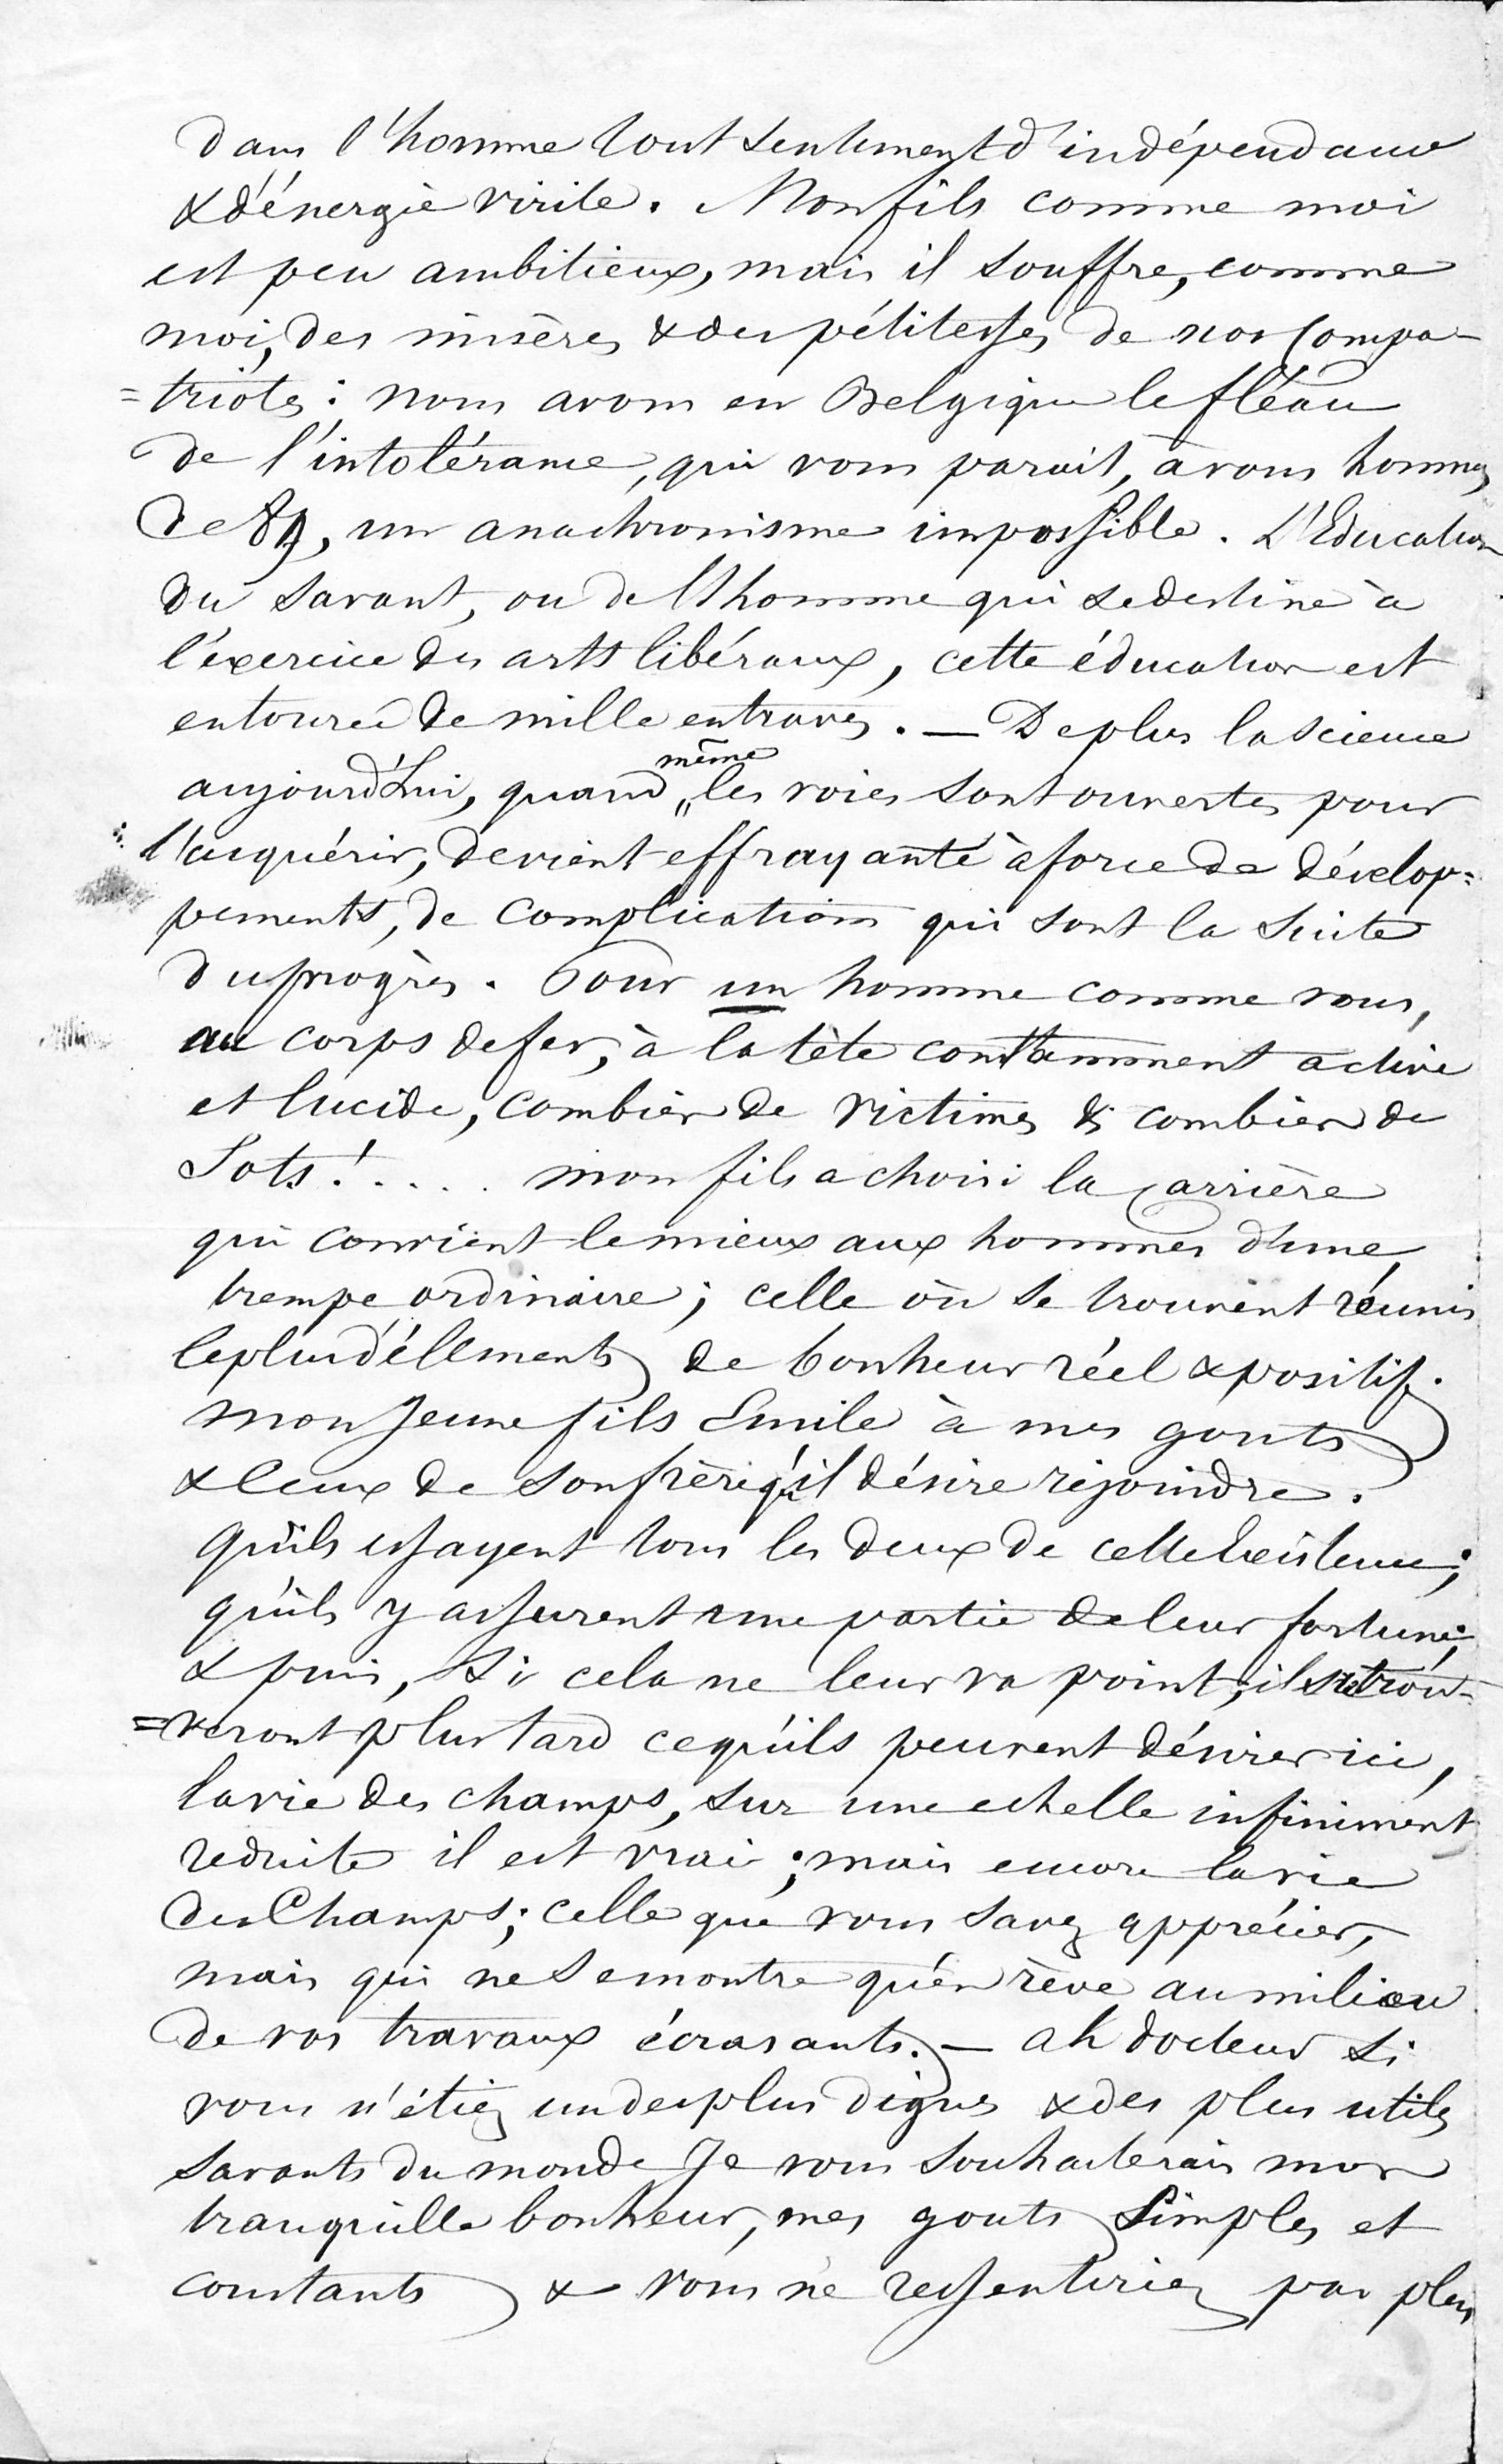 dans l'homme tout sentiment d'indépendance
& d'énergie virile. Mon fils comme moi
est peu ambitieux, mais il souffre, comme
moi, des misères & des pétitesses de nos Compa-
=triotes : nous avons en Belgique le fléau
de l'intolérance, qui vous parait, à vous hommes
de 89, un anachronisme impossible. L'Education
du savant, ou de l'homme qui se destine à
l'éxercice des arts libéraux, cette éducation est
entourée de mille entraves. — De plus la science
aujourd'hui, quand même les voies sont ouvertes pour
l'acquérir, devient effrayante à force de dévelop=
pements, de complications qui sont la suite
du progrès. Pour un homme comme vous,
au corps de fer, à la tète constamment active
et lucide, combien de victimes & combien de
Sots! .... mon fils a choisi la carrière
qui convient le mieux aux hommes d'une
trempe ordinaire ; celle où se trouvent réunis
le plus d'élements de bonheur réel & positif.
mon Jeune fils Emile à mes gouts
& ceux de son frère qu'il désire rejoindre.
qu'ils essayent tous les deux de cette Existence;
qu'ils y assurent une partie de leur fortune;
& puis, si cela ne leur va point, ils retrou-
=veront plus tard ce qu'ils peuvent désirer ici,
la vie des champs, sur une echelle infiniment
reduite il est vrai ; mais encore la vie
des Champs; celle que vous savez apprécier,
mais qui ne se montre qu'en rève au milieu
de vos travaux écrasants. — ah docteur si
vous n'étiez un des plus dignes & des plus utiles
savants du monde Je vous souhaiterais mon
tranquille bonheur, mes gouts Simples et
constants & vous ne ressentiriez pas plus